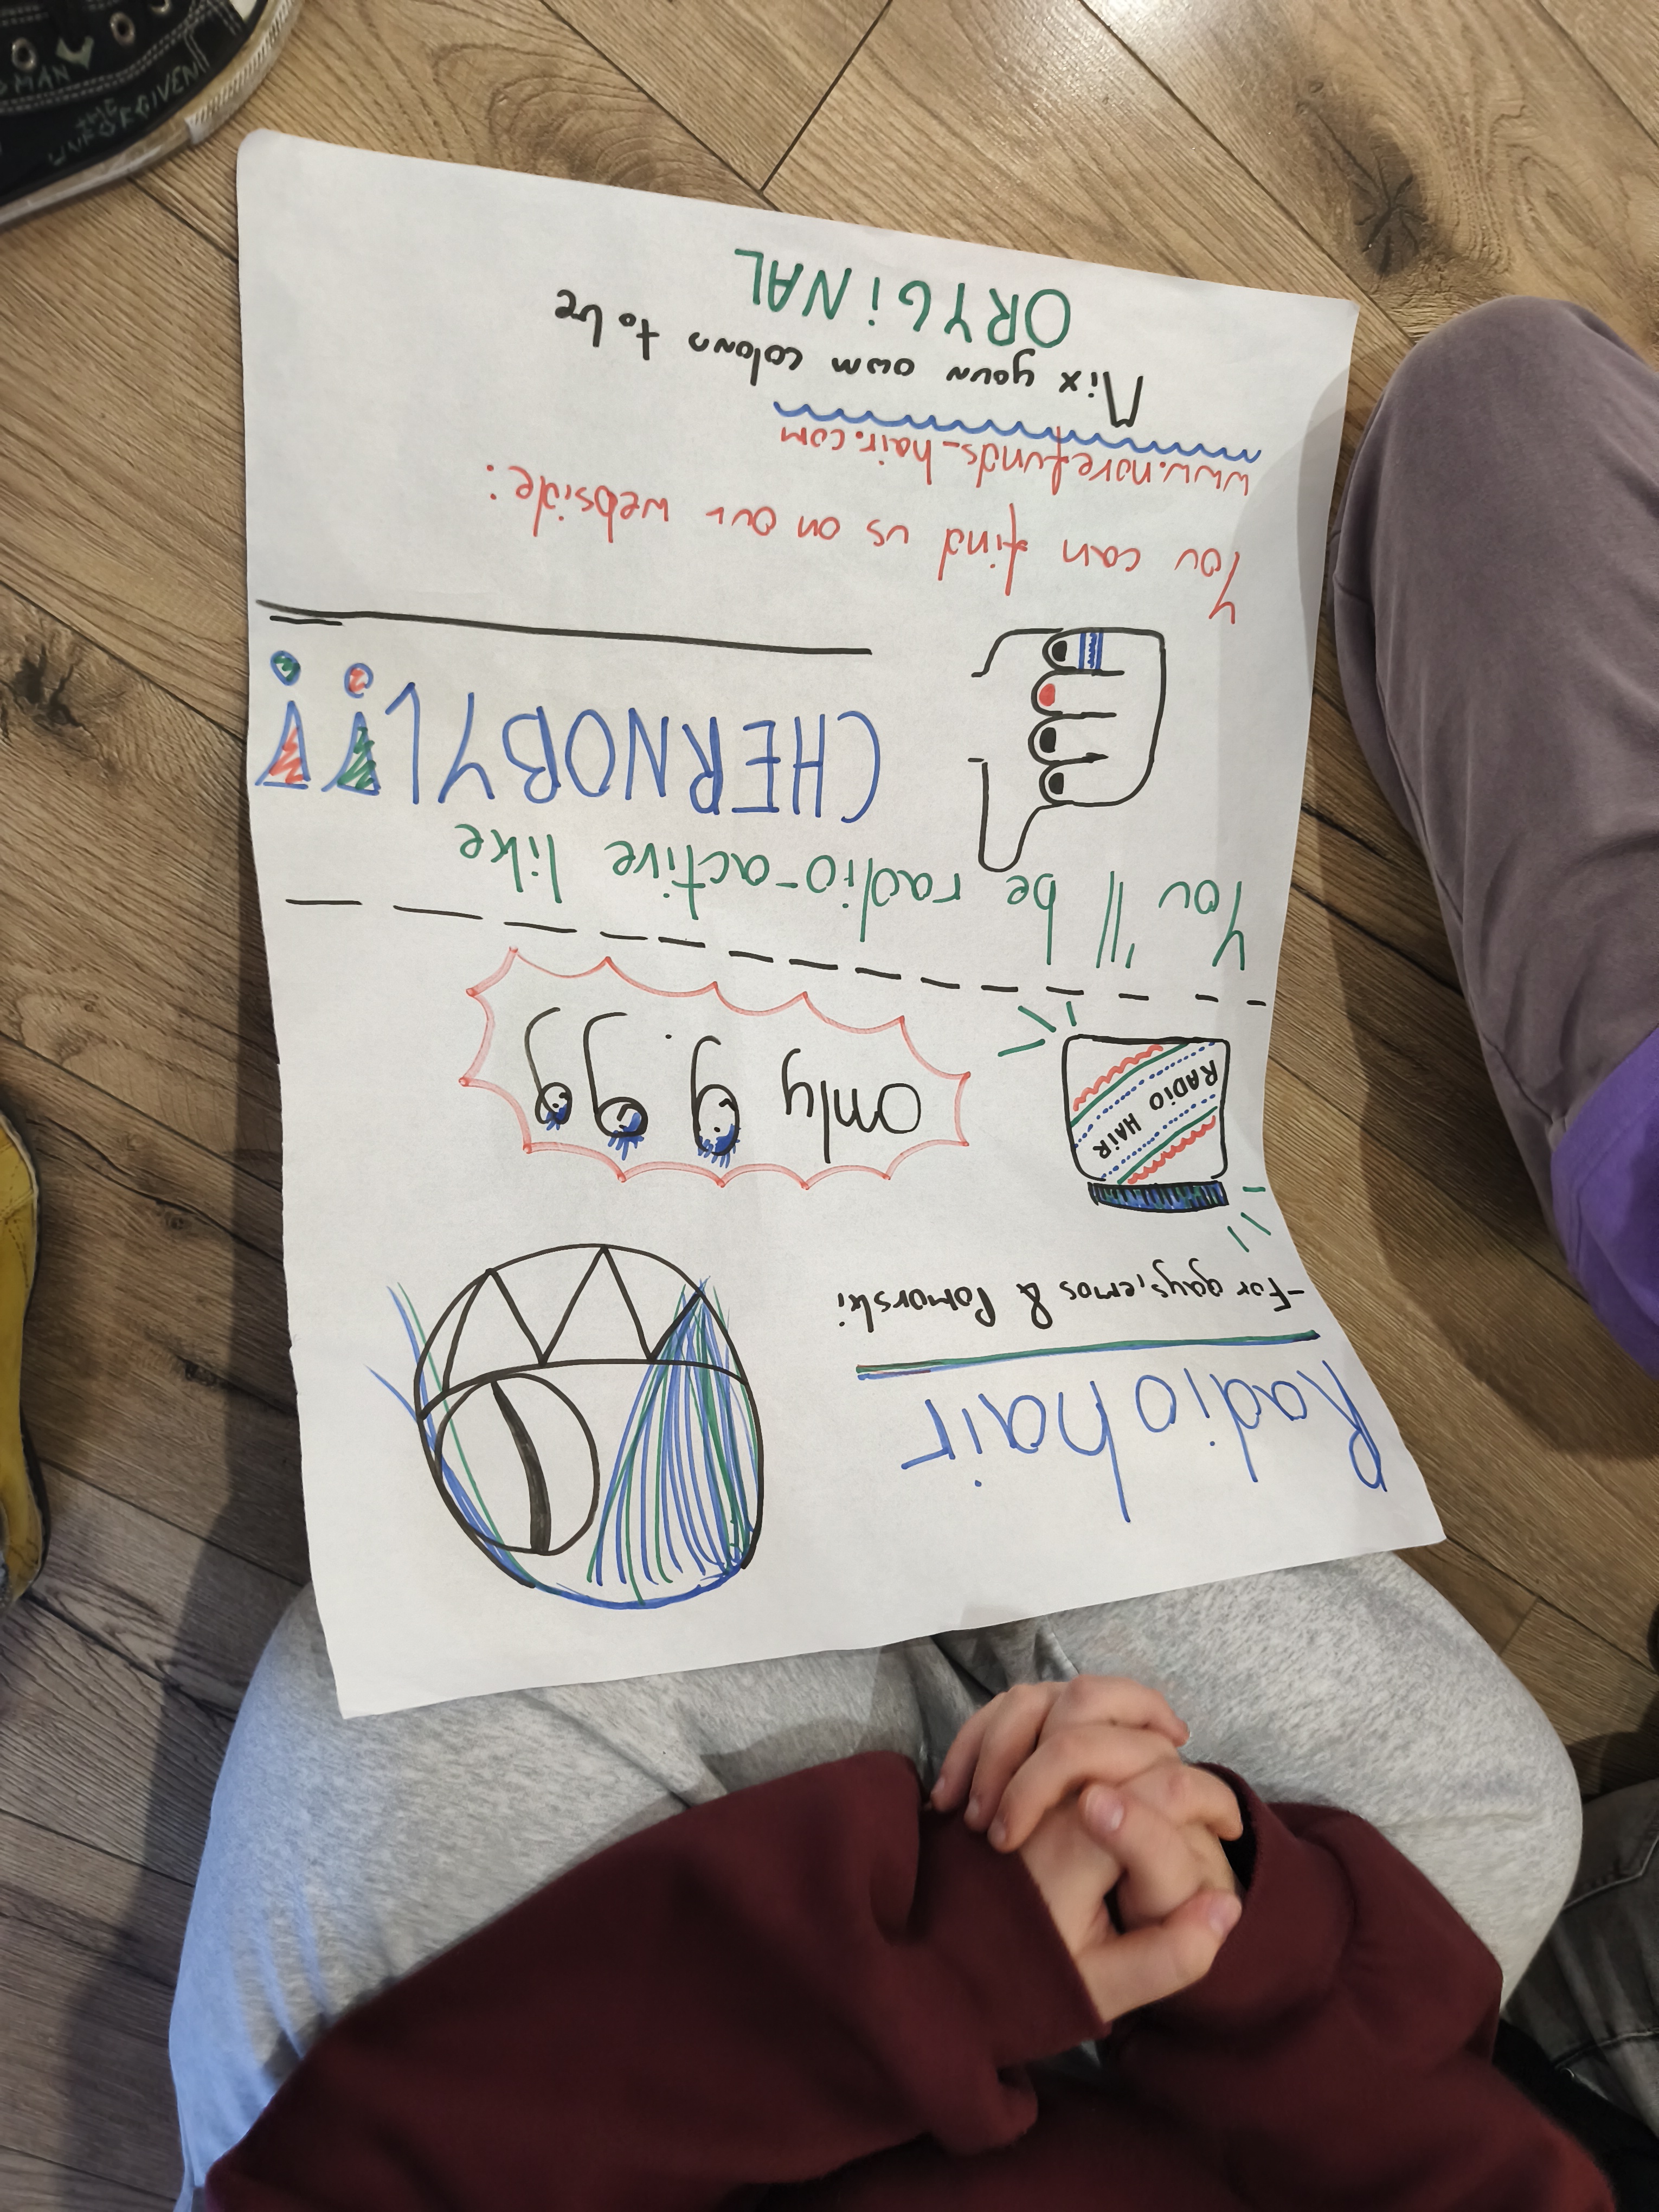 Radio hair
-For gays, emos & Pomorski
RADIO HAIR
only 9.99
You'll be radio-active like
CHERNOBYL!!
You can find us on our webside:
www.norefunds_hair.com
Mix your own colour to be
ORYGiNAL
MAN
THE
UNFORGIVEN